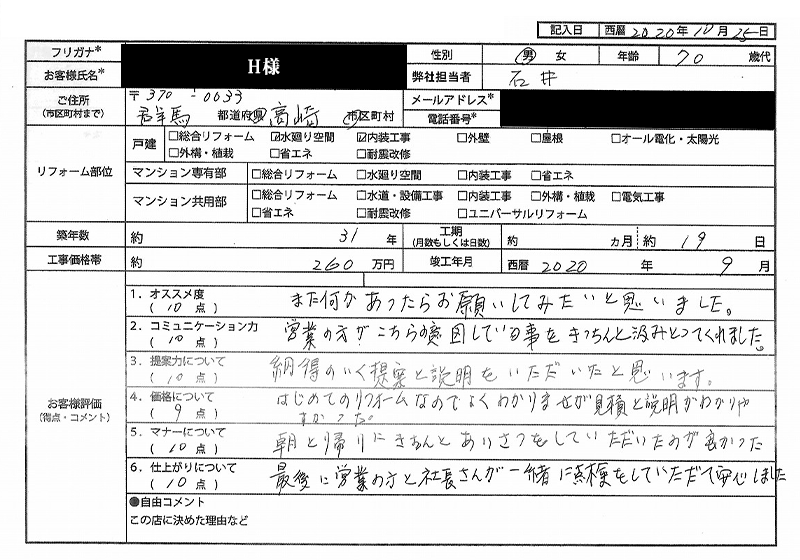 記入日 西暦 2020年 10月 25日
フリガナ*
お客様氏名* H様
性別 男 女 年齢 70 歳代
弊社担当者 石井
ご住所
(市区町村まで)
〒370-0033
群馬 都道府県 高崎 市区町村
メールアドレス*
電話番号*
リフォーム部位
戸建 □総合リフォーム ☑水廻り空間 ☑内装工事 □外壁 □屋根 □オール電化・太陽光
□外構・植栽 □省エネ □耐震改修
マンション専有部 □総合リフォーム □水廻り空間 □内装工事 □省エネ
マンション共用部 □総合リフォーム □水道・設備工事 □内装工事 □外構・植栽 □電気工事
□省エネ □耐震改修 □ユニバーサルリフォーム
築年数 約 31 年
工期
(月数もしくは日数)
約 ヵ月 約 19 日
工事価格帯 約 260 万円 竣工年月 西暦 2020 年 9 月
お客様評価
(得点・コメント)
1. オススメ度
( 10 点 )
また何かあったらお願いしてみたいと思いました。
2. コミュニケーション力
( 10 点 )
営業の方がこちらの意図している事をきっちんと汲みとってくれました。
3. 提案力について
( 10 点 )
納得のいく提案と説明をいただいたと思います。
4. 価格について
( 9 点 )
はじめてのリフォームなのでよくわかりませが見積と説明がわかりや
すかった。
5. マナーについて
( 10 点 )
朝と帰りにきちんとあいさつをしていただいたのが良かった
6. 仕上がりについて
( 10 点 )
最後に営業の方と社長さんが一緒に点検をしていただて安心しました
●自由コメント
この店に決めた理由など